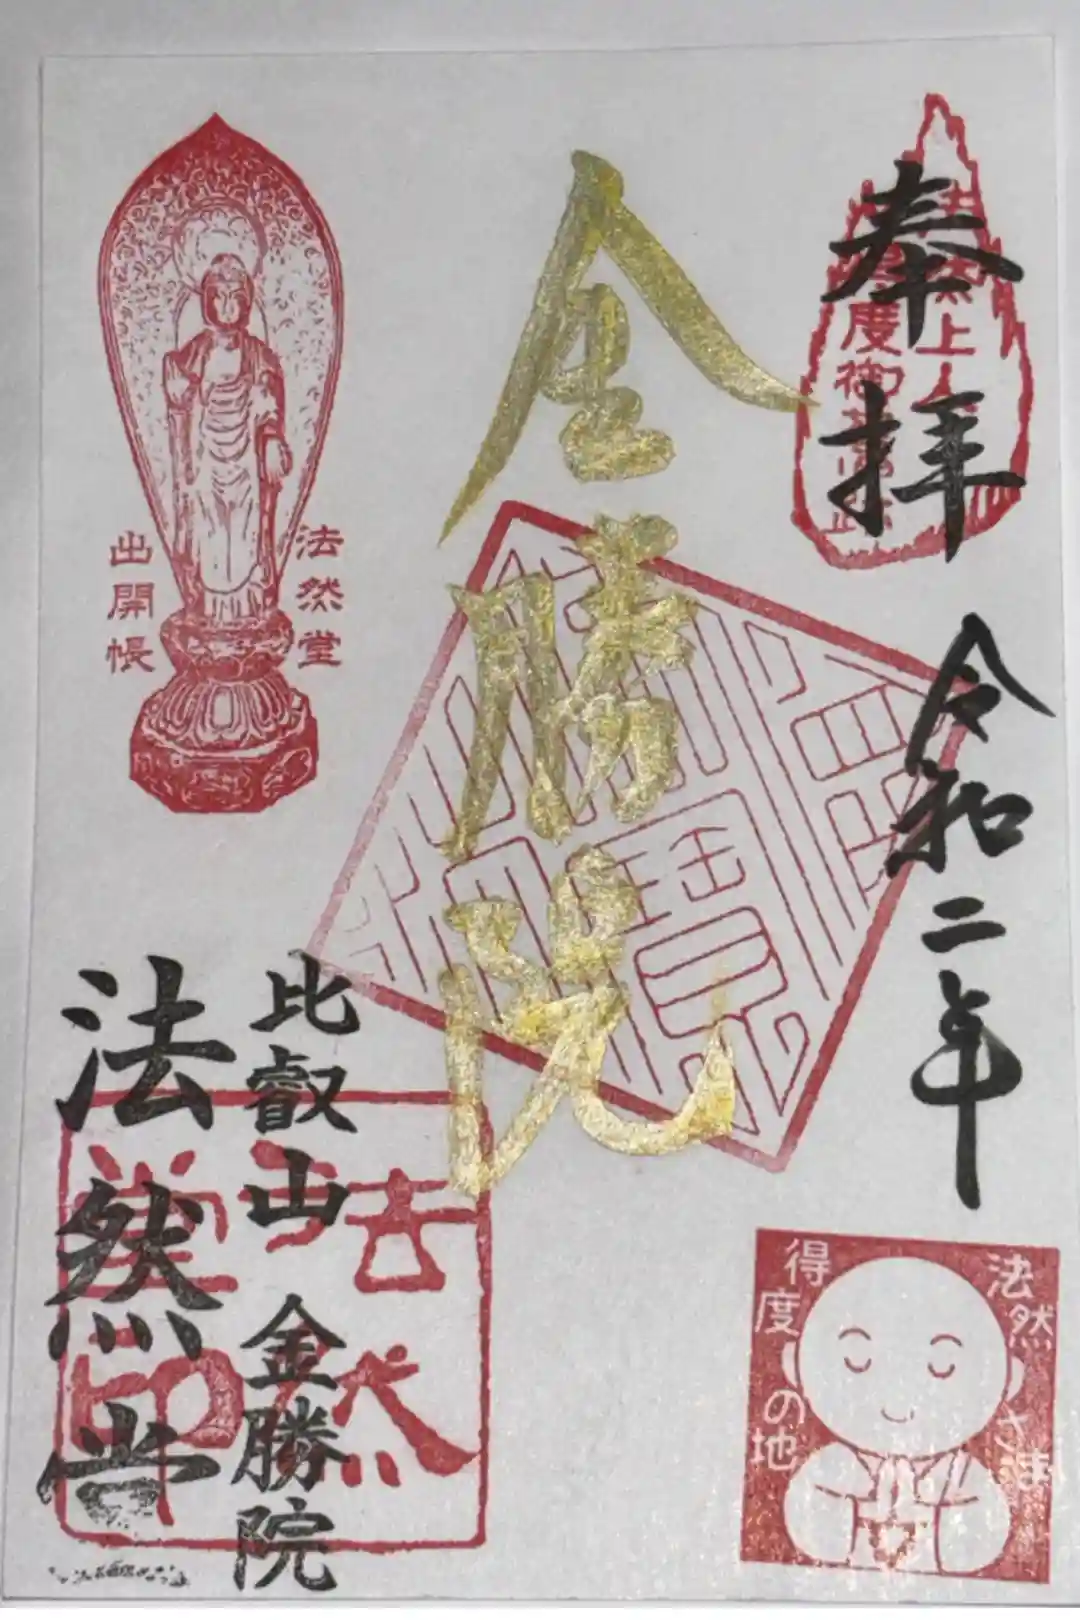 奉拝
令和二年
法然上人
得度御旧跡
金勝院
法然堂
出開帳
比叡山 金勝院
法然堂
法然
堂印
法然さま
得度の地